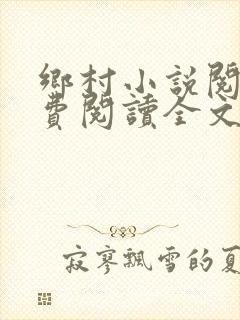 鄉村小說閱
費閱讀全文
寂寥飄雪的夏